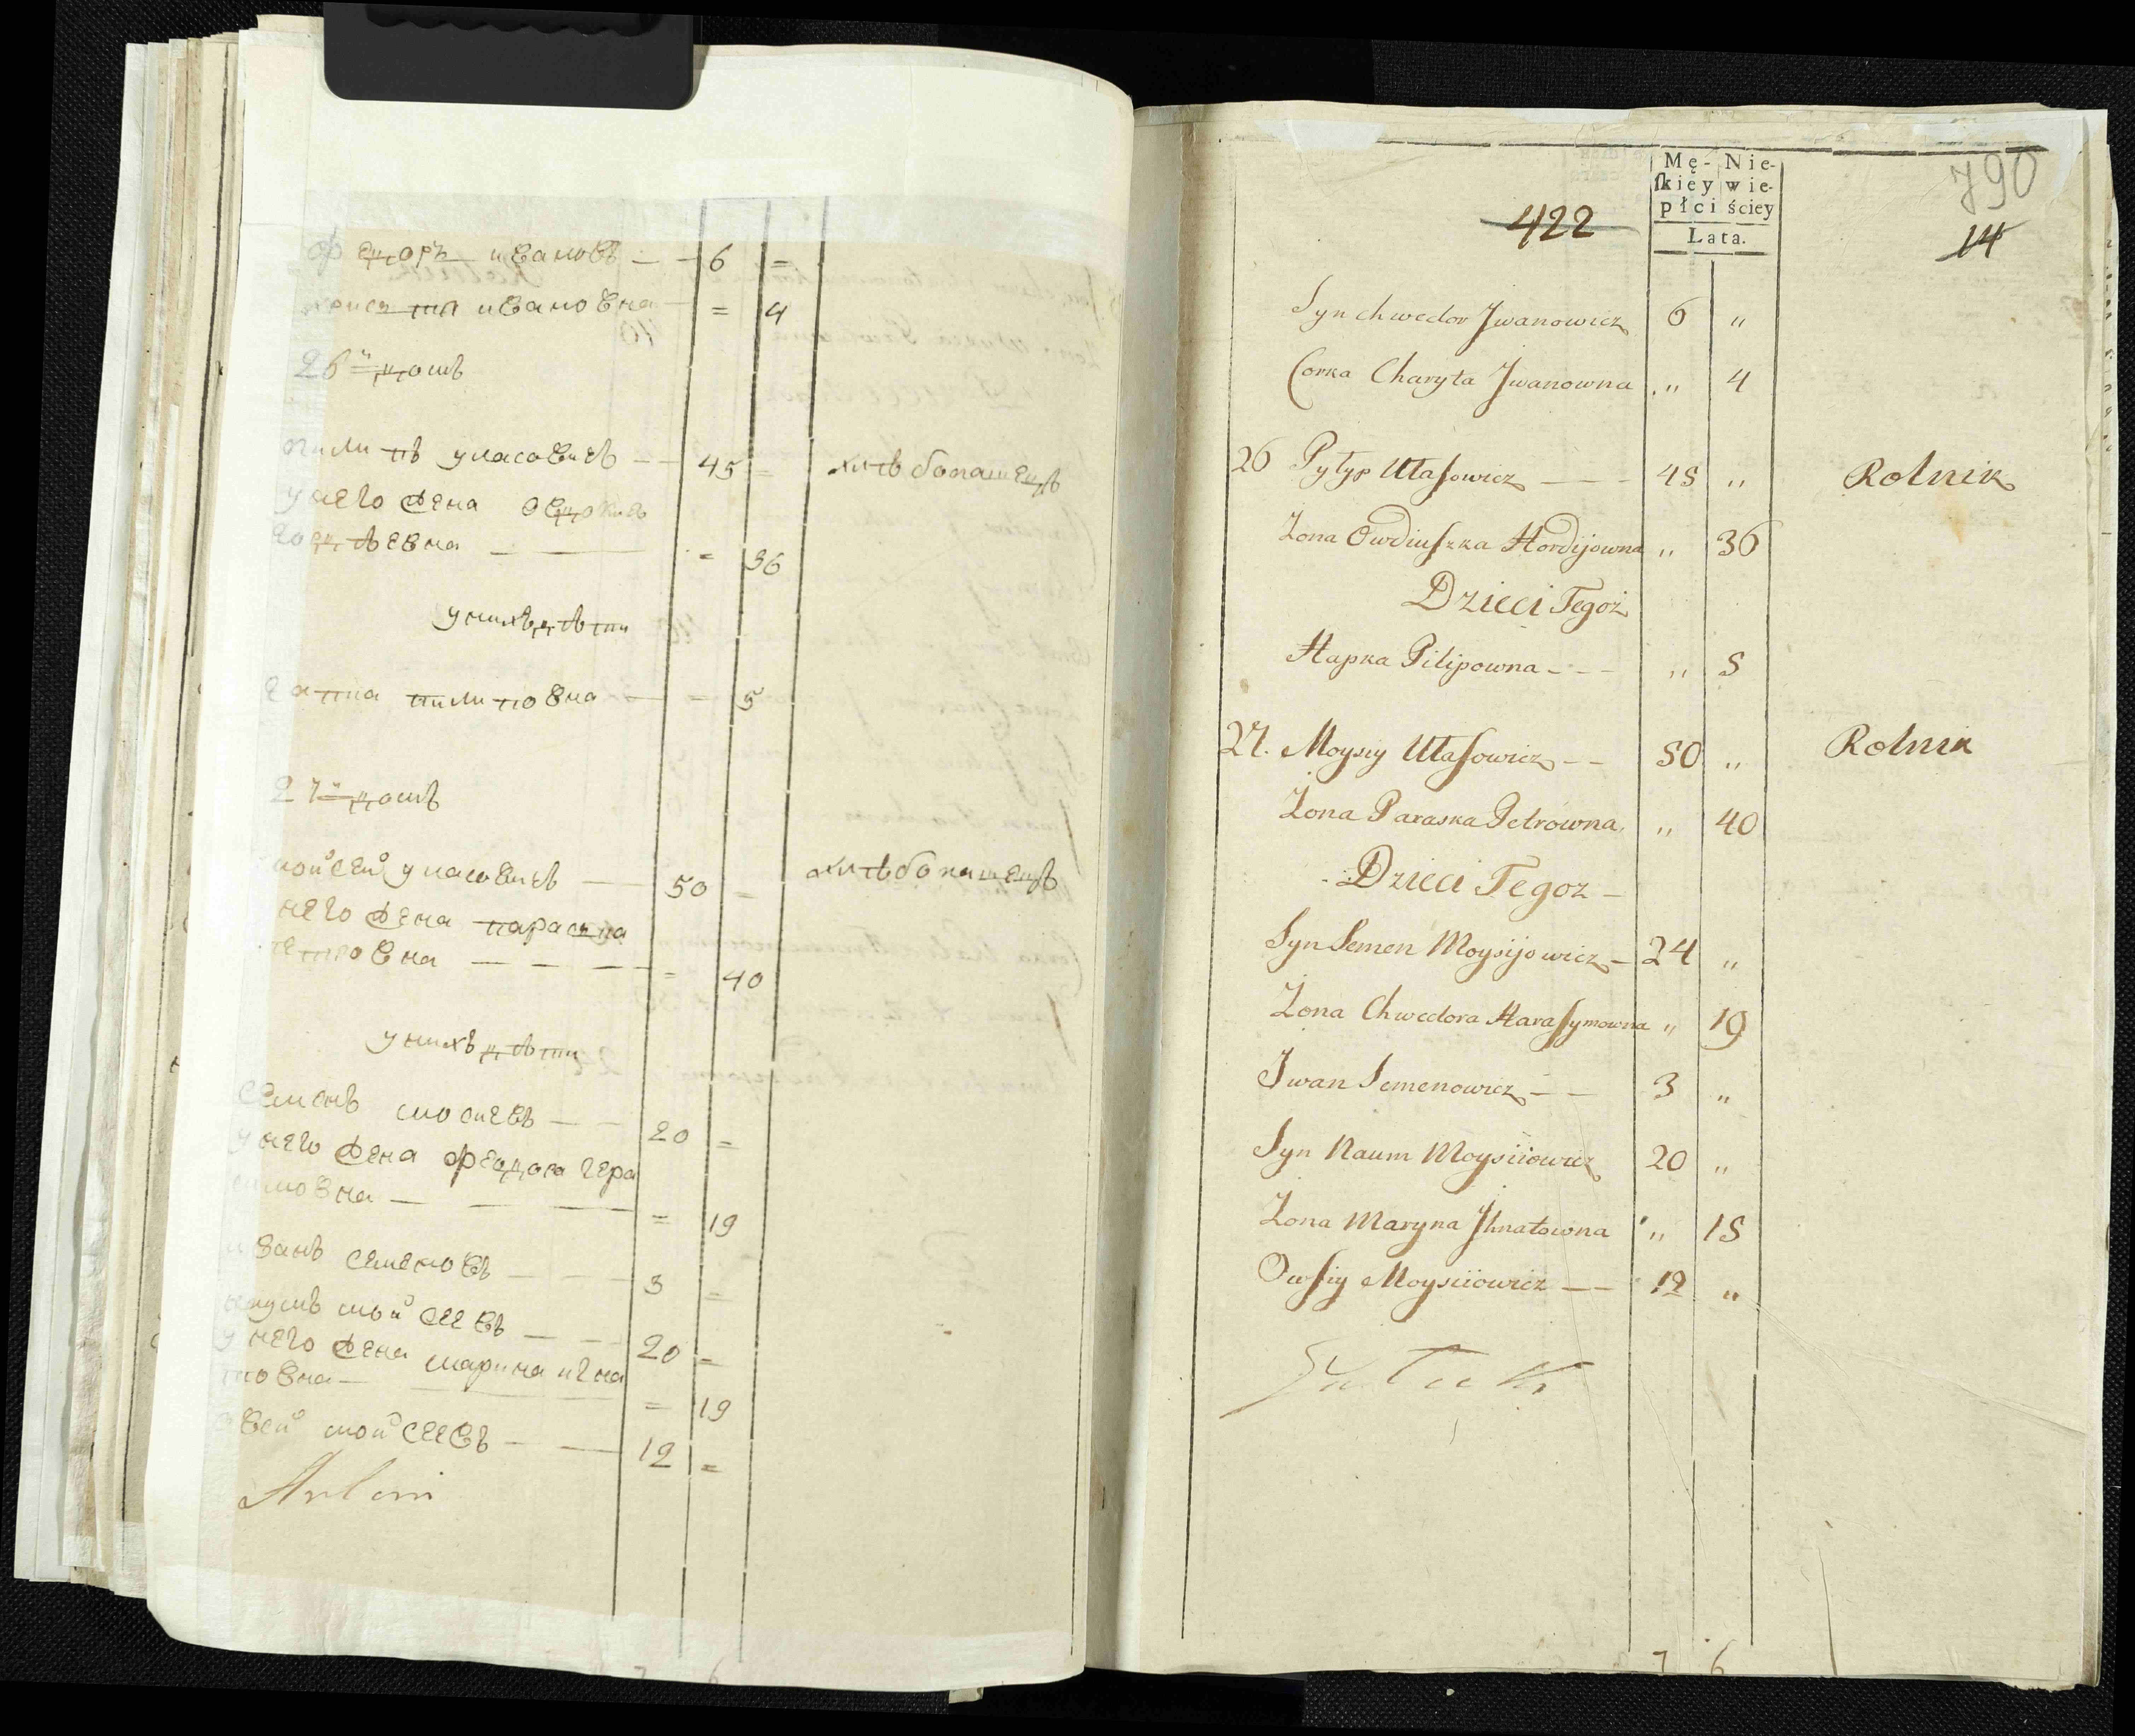 федоръ ивановъ — — 6 =
ивановна — = 4
26й домъ
филипъ уласовичъ — — 45 = хлѣбопашецъ
у него жена
гордѣевна — — = 36
у нихъ дѣти
гапка пилиповна — = 5
27й домъ
мойсей уласовичъ — 50 = хлѣбопашецъ
него жена параска
петровна — — — = 40
у нихъ дѣти
семенъ мосиевъ — — 20 =
у него жена феодора гера
симовна — — — = 19
иванъ семеновъ — — 3 =
наумъ мойсеевъ — — 20 =
у него жена марина игна
товна — — = 19
евсей мойсеевъ — — 12 =
7 6
Mę- Nie-
ſkiey wie-
płci ściey
Lata.
790
422
14
Syn Chwedor Jwanowicz 6 "
Corka Charyta Jwanowna " 4
26 Pylyp Ułasowicz — — 45 " Rolnik
Żona Owdiuszka Hordijowna " 36
Dzieci Tegoż
Hapka Pilipowna - - - " 5
27. Moysiy Ułasowicz - - 50 " Rolnik
Żona Paraska Petrowna " 40
Dzieci Tegoz -
Syn Semen Moysijowicz - 24 "
Żona Chwedora Harasymowna " 19
Jwan Semenowicz - - 3 "
Syn Naum Moysiiowicz 20 "
Żona Maryna Jhnatowna " 15
Owsiy Moysiiowicz — — 12 "
7 6